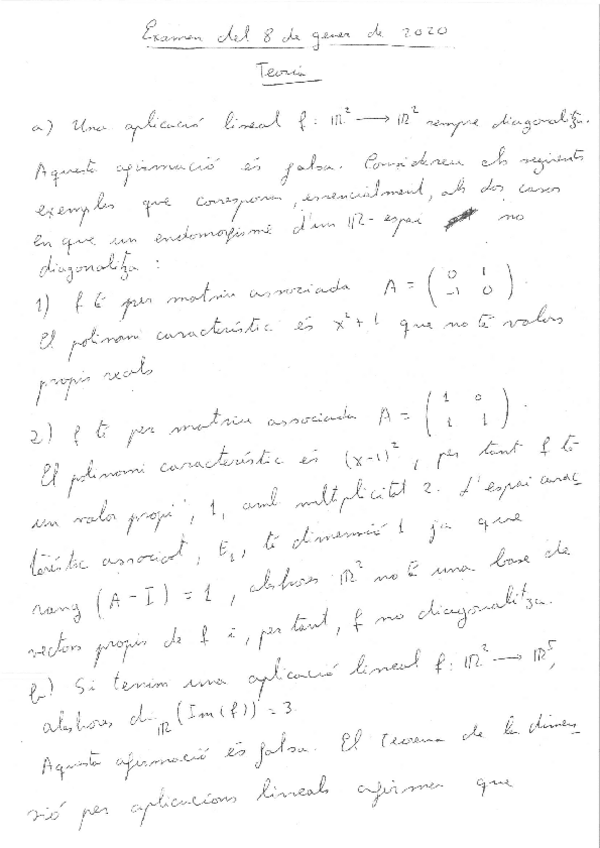 Examen del 8 de gener de 2020
Teoria
a) Una aplicació lineal f: ℝ² → ℝ² sempre diagonalitza.
Aquesta afirmació és falsa. Considereu els següents
exemples que corresponen, essencialment, als dos casos
en que un endomorfisme d'un ℝ-espai no
diagonalitza:
1) f té per matriu associada A = ( 0 1 ; -1 0 ).
El polinomi característic és x²+1 que no té valors
propis reals
2) f té per matriu associada A = ( 1 0 ; 1 1 ).
El polinomi característic és (x-1)², per tant f té
un valor propi, 1, amb multiplicitat 2. L'espai carac
terístic associat, E₁, té dimensió 1 ja que
rang (A-I) = 1, aleshores ℝ² no té una base de
vectors propis de f i, per tant, f no diagonalitza.
b) Si tenim una aplicació lineal f: ℝ² → ℝ⁵,
aleshores dim_ℝ (Im(f)) = 3
Aquesta afirmació és falsa. El Teorema de la dimen
sió per aplicacions lineals afirma que